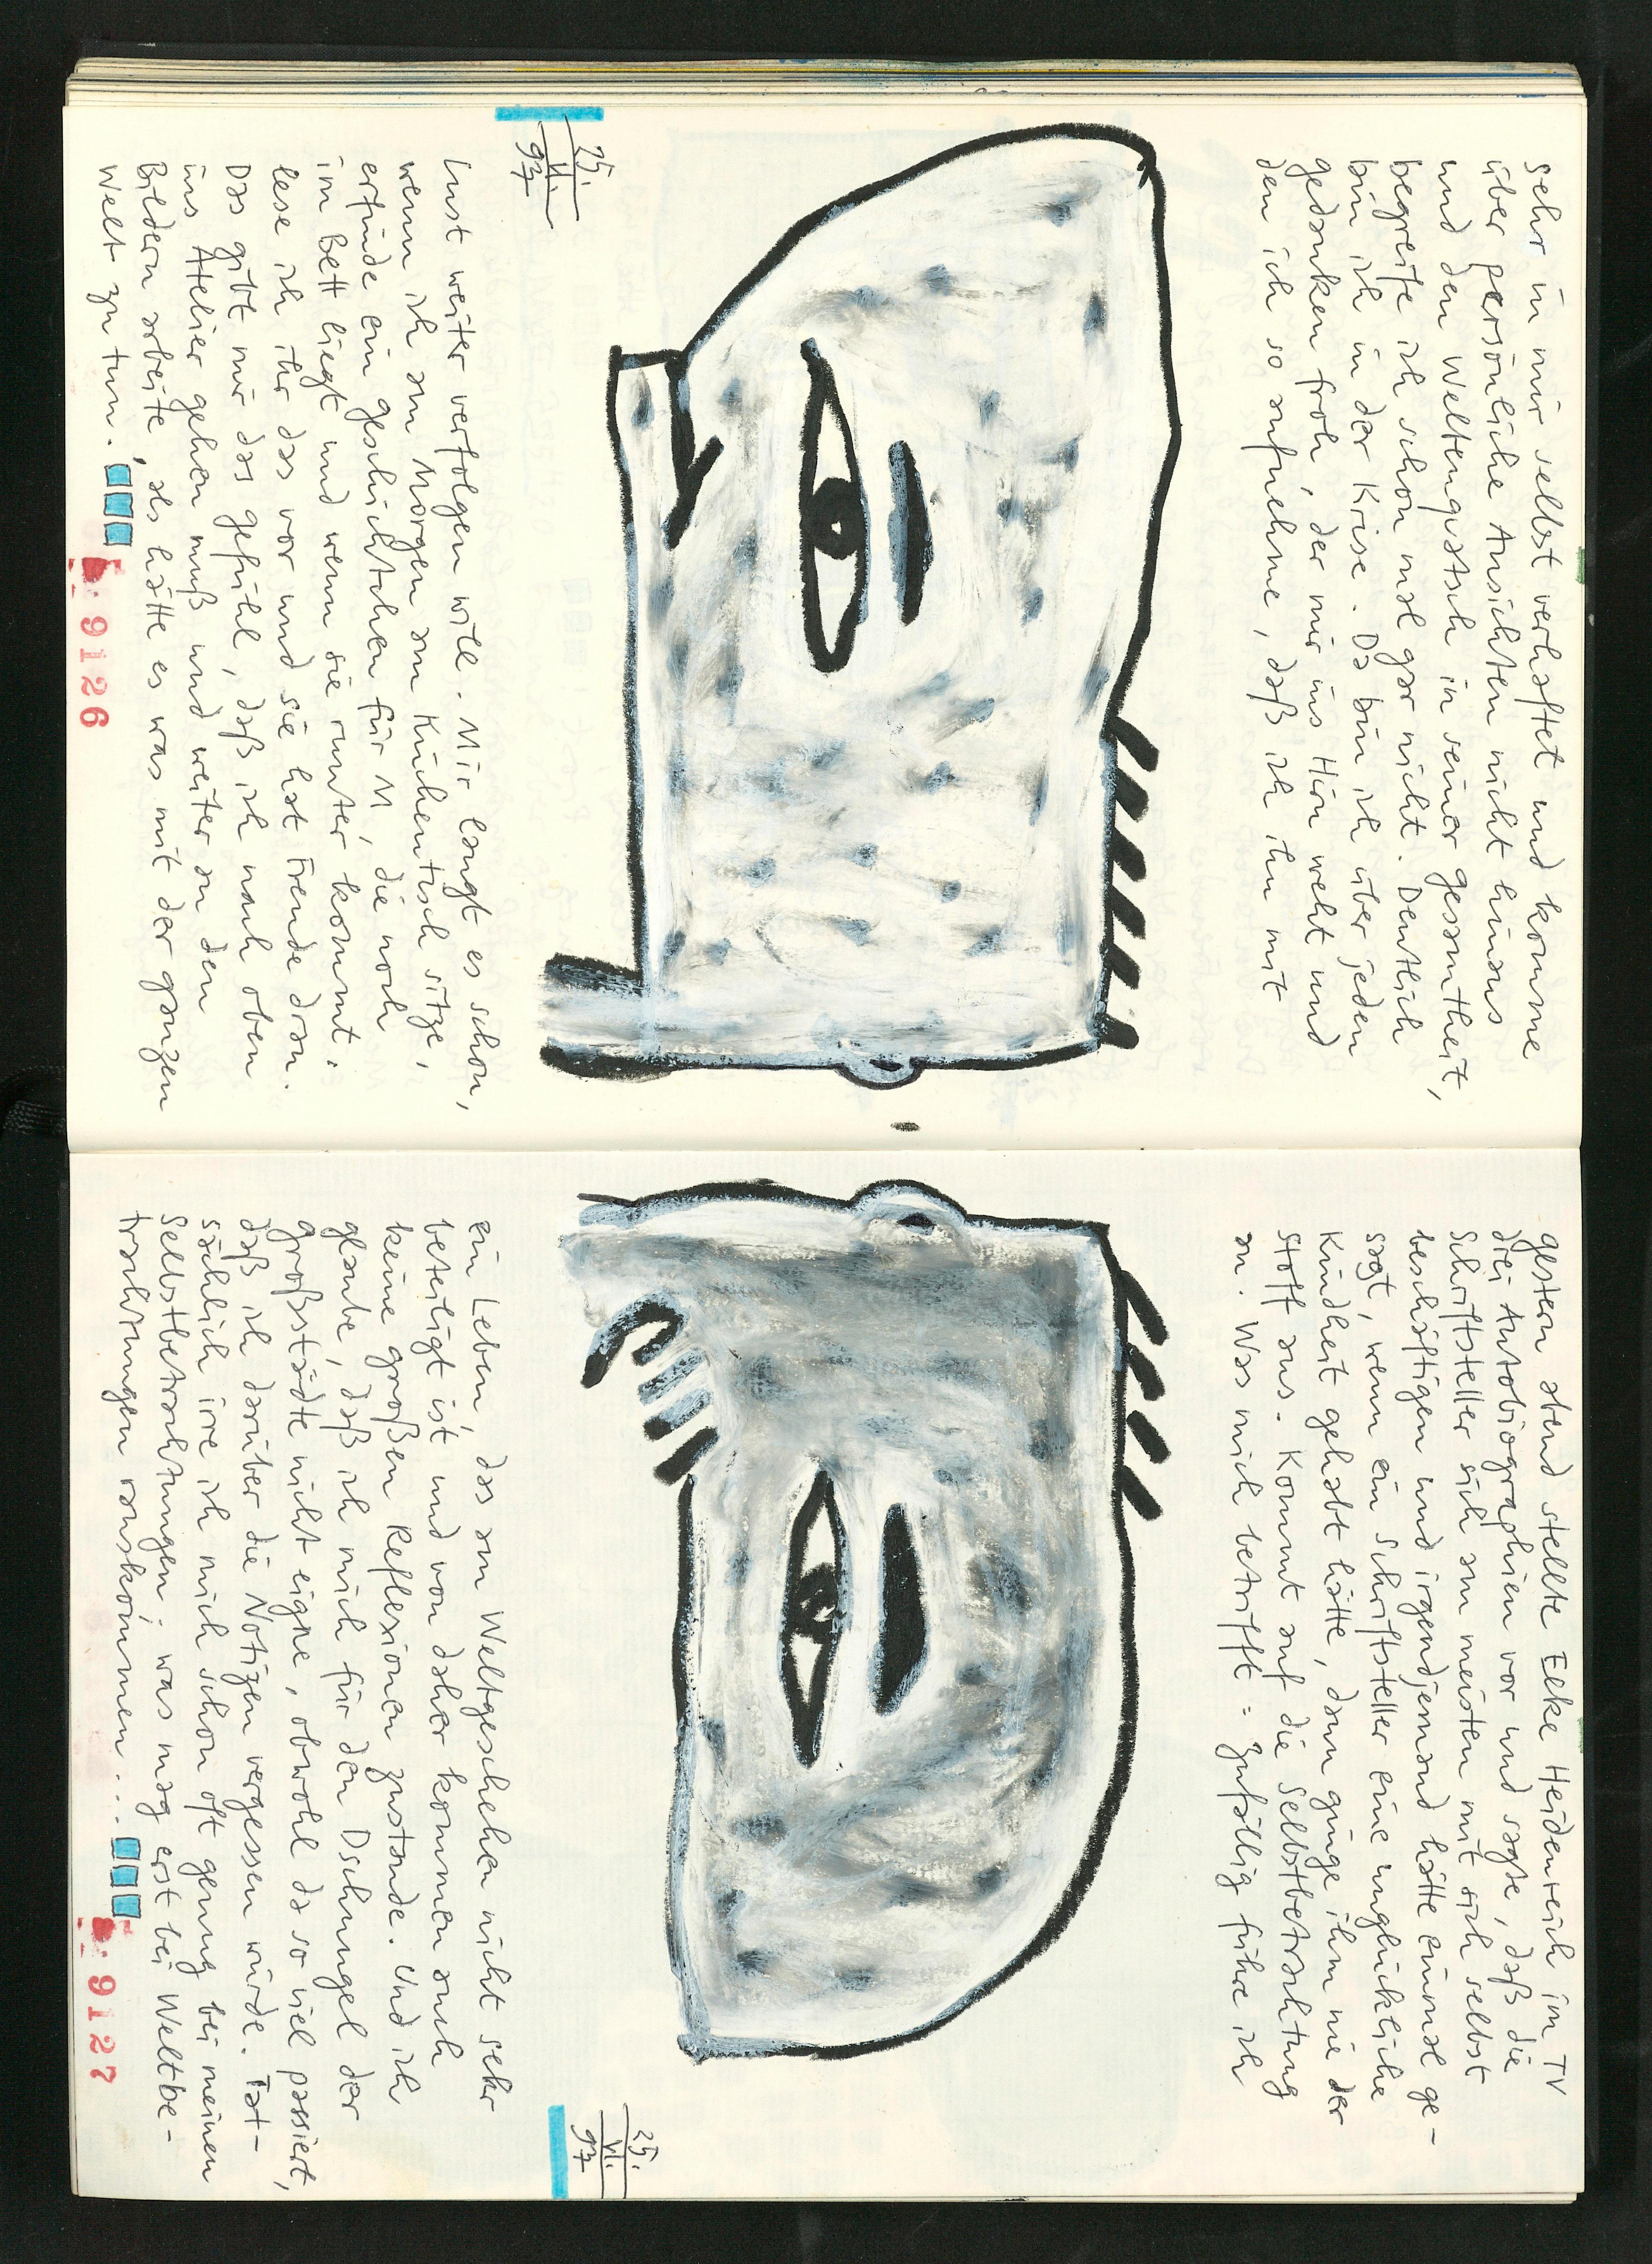 sehr in mir selbst verhaftet und komme
über persönliche Ansichten nicht hinaus
und den Weltenquatsch in seiner gesamtheit,
begreife ich schon mal gar nicht. Deutlich
bin ich in der Krise. Da bin ich über jeden
gedanken froh, der mir ins Hirn weht und
den ich so aufnehme, daß ich ihn mit
25.
VI.
97
Lust weiter verfolgen will. Mir langt es schon,
wenn ich am Morgen am Küchentisch sitze,
erfinde ein geschichtchen für M, die noch
im bett liegt und wenn sie runter kommt,
lese ich ihr das vor und sie hat Freude dran.
Das gibt mir das gefühl, daß ich nach oben
ins Atelier gehen muß und weiter an den
Bildern arbeite, als hätte es was mit der ganzen
Welt zu tun.
9126
gestern abend stellte Elke Heidenreich im TV
drei Autobiographien vor und sagte, daß die
Schriftsteller sich am meisten mit sich selbst
beschäftigen und irgendjemand hätte einmal ge-
sagt, wenn ein Schriftsteller eine unglückliche
Kindheit gehabt hätte, dann ginge ihm nie der
stoff aus. Kommt auf die Selbstbetrachtung
an. Was mich betrifft: Zufällig führe ich
25.
VI.
97
ein Leben, das am Weltgeschehen nicht sehr
beteiligt ist und von daher kommen auch
keine großen Reflexionen zustande. Und ich
glaube, daß ich mich für den Dschungel der
großstädte nicht eigne, obwohl da so viel passiert,
daß ich darüber die Notizen vergessen würde. Tat-
sächlich irre ich mich schon oft genug bei meinen
Selbstbetrachtungen: was mag erst bei Weltbe-
trachtungen rauskommen...
9127